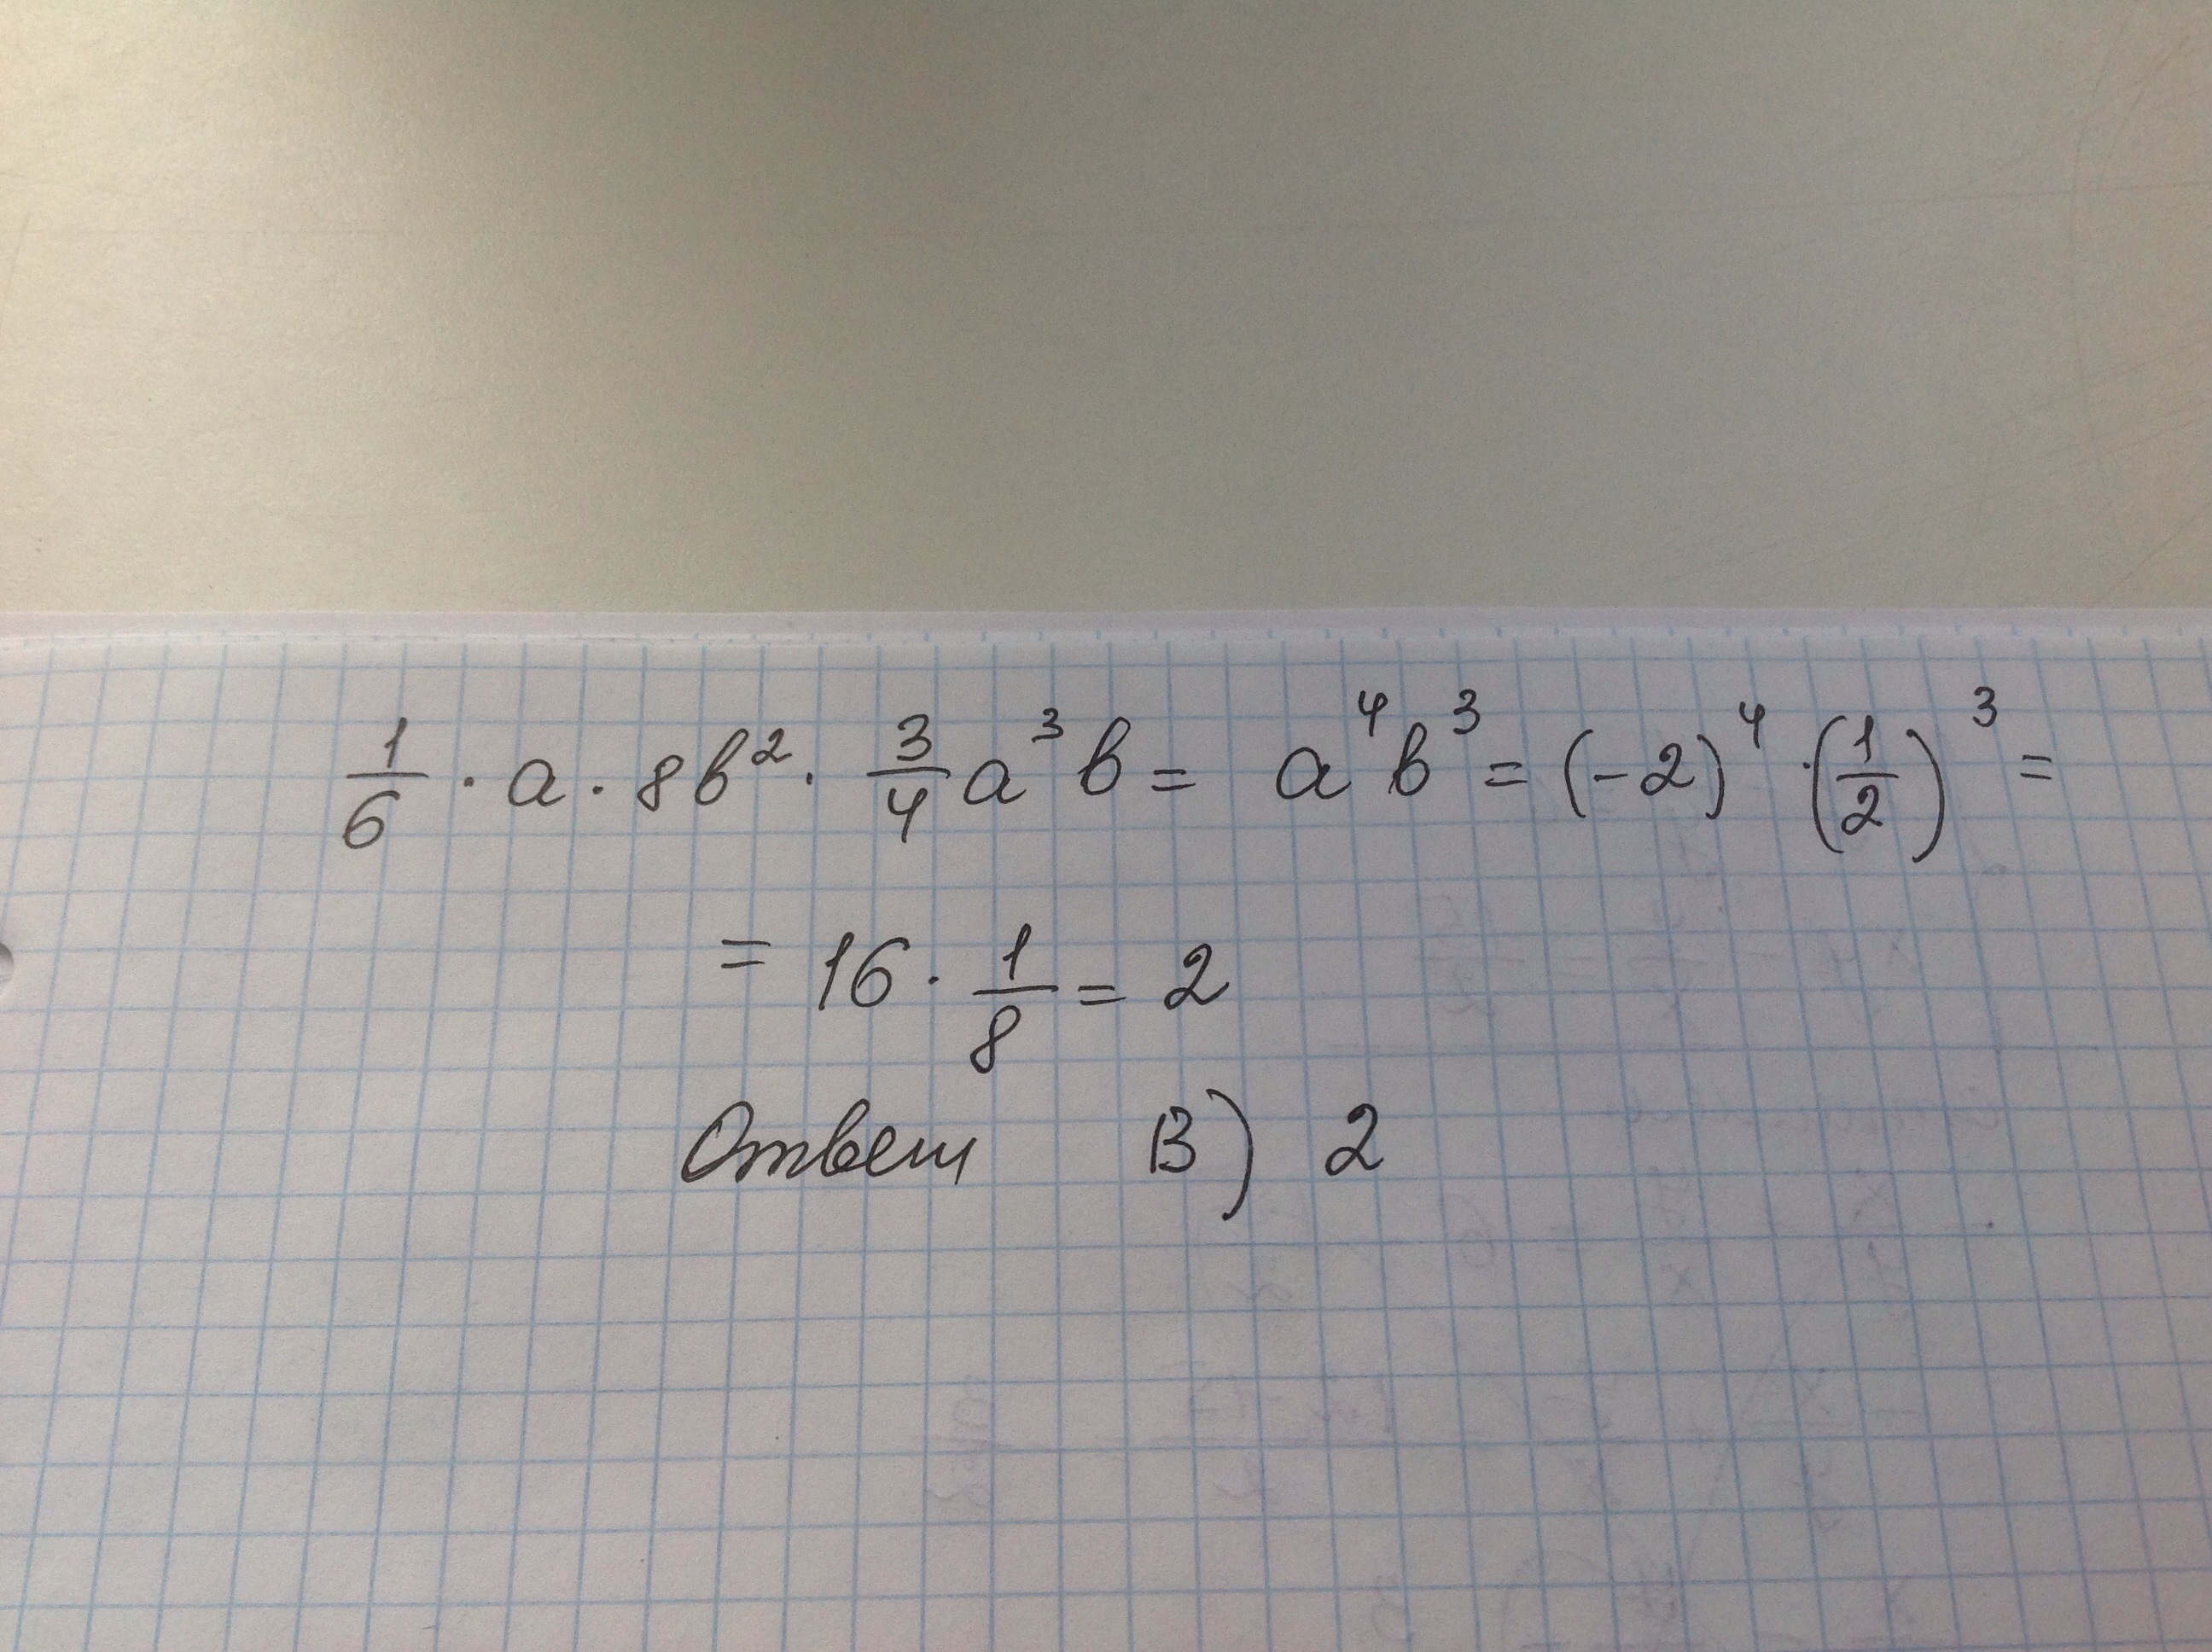 1/6 · a · 8b² · 3/4 a³b = a⁴b³ = (-2)⁴ · (1/2)³ =
= 16 · 1/8 = 2
Ответ В) 2